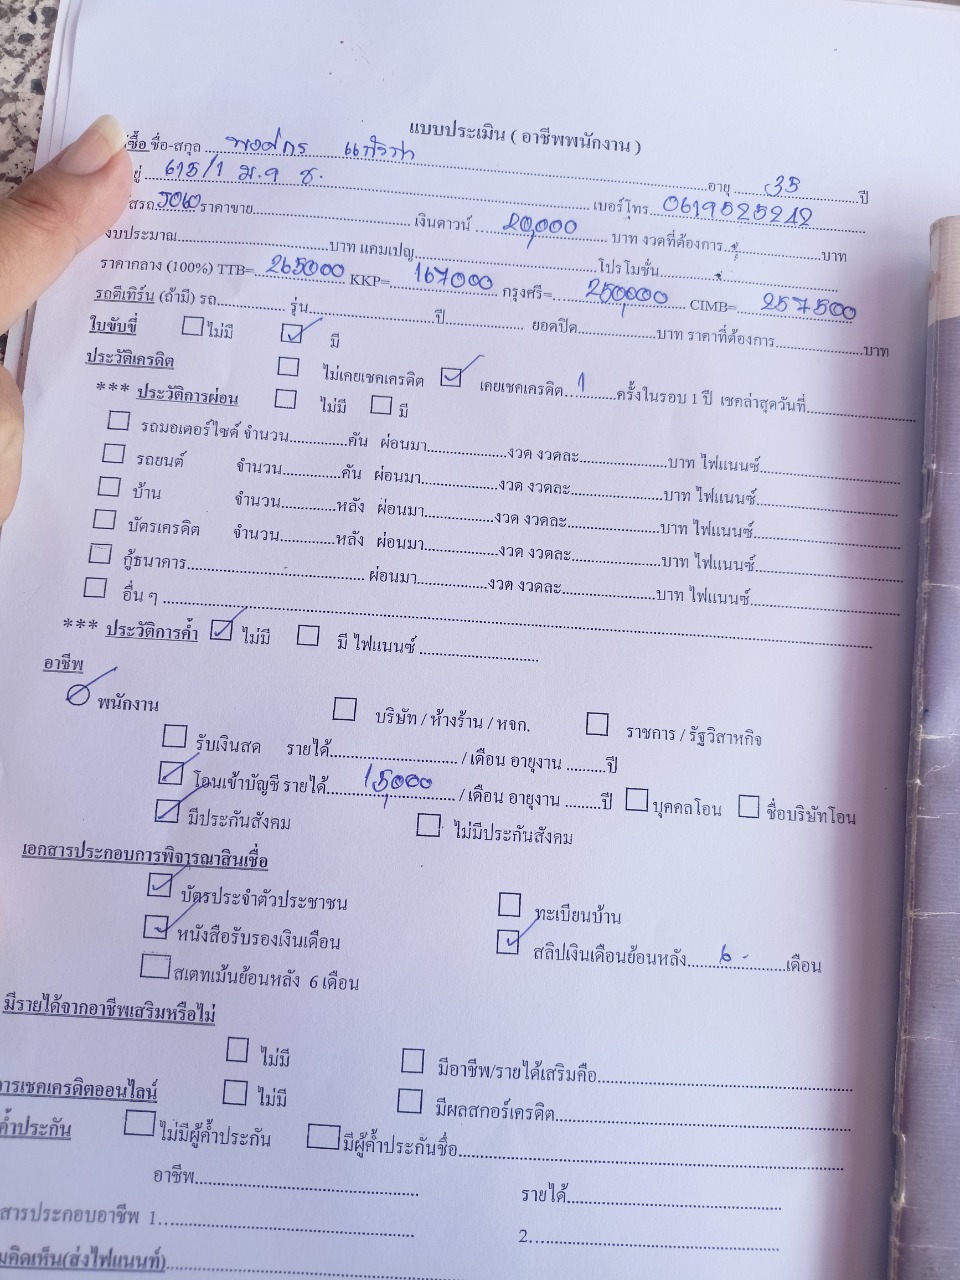 แบบประเมิน ( อาชีพพนักงาน )
ซื้อ ชื่อ-สกุล พงศกร อายุ 35 ปี
ยู่ 615/1 ม.9 ช. เบอร์โทร 0619525242
สรถ ราคาขาย เงินดาวน์ 20,000 บาท งวดที่ต้องการ บาท
งบประมาณ บาท แคมเปญ โปรโมชั่น
ราคากลาง (100%) TTB= 265000 KKP= 167000 กรุงศรี= 250,000 CIMB= 257500
รถตีเทิร์น (ถ้ามี) รถ รุ่น ปี ยอดปิด บาท ราคาที่ต้องการ บาท
ใบขับขี่ ไม่มี มี
ประวัติเครดิต ไม่เคยเชคเครดิต เคยเชคเครดิต 1 ครั้งในรอบ 1 ปี เชคล่าสุดวันที่
*** ประวัติการผ่อน ไม่มี มี
รถมอเตอร์ไซค์ จำนวน คัน ผ่อนมา งวด งวดละ บาท ไฟแนนซ์
รถยนต์ จำนวน คัน ผ่อนมา งวด งวดละ บาท ไฟแนนซ์
บ้าน จำนวน หลัง ผ่อนมา งวด งวดละ บาท ไฟแนนซ์
บัตรเครดิต จำนวน หลัง ผ่อนมา งวด งวดละ บาท ไฟแนนซ์
กู้ธนาคาร ผ่อนมา งวด งวดละ บาท ไฟแนนซ์
อื่น ๆ
*** ประวัติการค้ำ ไม่มี มี ไฟแนนซ์
อาชีพ
พนักงาน บริษัท / ห้างร้าน / หจก. ราชการ / รัฐวิสาหกิจ
รับเงินสด รายได้ / เดือน อายุงาน ปี
โอนเข้าบัญชี รายได้ 15,000 / เดือน อายุงาน ปี บุคคลโอน ชื่อบริษัทโอน
มีประกันสังคม ไม่มีประกันสังคม
เอกสารประกอบการพิจารณาสินเชื่อ
บัตรประจำตัวประชาชน ทะเบียนบ้าน
หนังสือรับรองเงินเดือน สลิปเงินเดือนย้อนหลัง 6 เดือน
สเตทเม้นย้อนหลัง 6 เดือน
มีรายได้จากอาชีพเสริมหรือไม่
ไม่มี มีอาชีพ/รายได้เสริมคือ
การเชคเครดิตออนไลน์ ไม่มี มีผลสกอร์เครดิต
ค้ำประกัน ไม่มีผู้ค้ำประกัน มีผู้ค้ำประกันชื่อ
อาชีพ รายได้
สารประกอบอาชีพ 1. 2.
มคิดเห็น(ส่งไฟแนนท์)